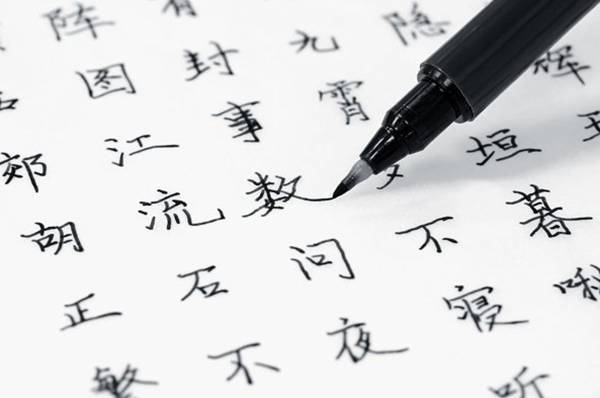 辉
隐垣暮啾
九霄不寝听
有封事数问夜
阵图江流石不
郊胡正繁